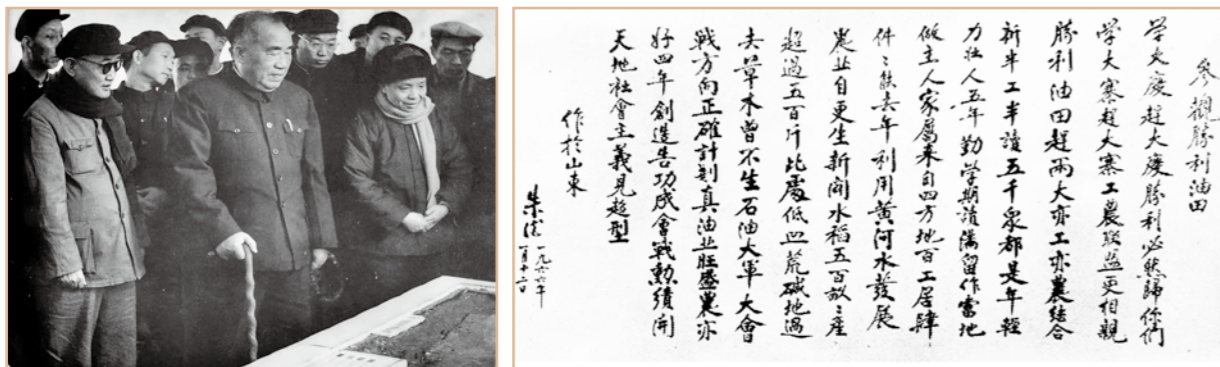 參觀勝利油田
学大慶趕大慶勝利必然歸你們
学大寨趕大寨工農联盟更相親
勝利油田趕兩大亦工亦農結合
新半工半讀五千衆都是年輕
力壮人五年勤学期讀滿留作當地
做主人家屬来自四方地百工居肆
件〻能去年利用黄河水發展
農业自更生新開水稻五百畝〻產
超過五百斤此處低凹荒碱地過
去草木曾不生石油大軍大會
戰方向正確計划真油业旺盛農亦
好四年創造告功成會戰勲績開
天地社會主義見型
作於山東
朱德
一九六六年
一月十二日